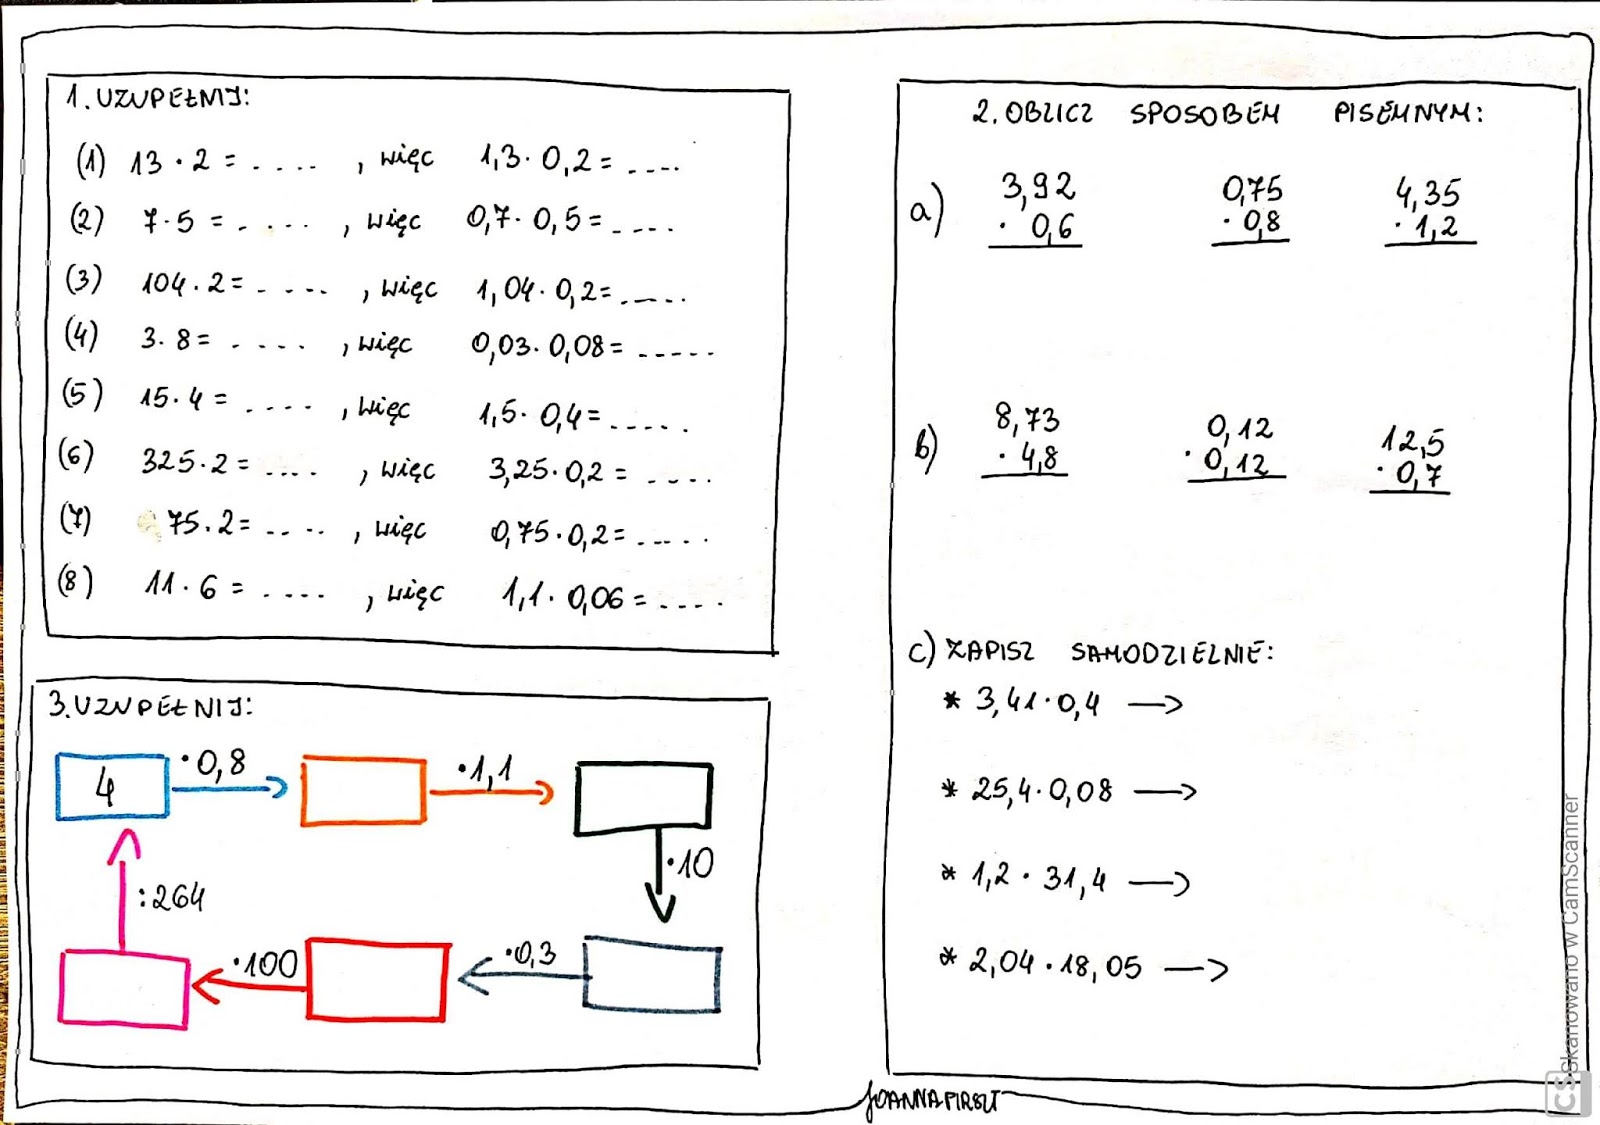 1. UZUPEŁNIJ:
(1) 13 · 2 = .... , więc 1,3 · 0,2 = ....
(2) 7 · 5 = .... , więc 0,7 · 0,5 = ....
(3) 104 · 2 = .... , więc 1,04 · 0,2 = ....
(4) 3 · 8 = .... , więc 0,03 · 0,08 = .....
(5) 15 · 4 = .... , więc 1,5 · 0,4 = .....
(6) 325 · 2 = .... , więc 3,25 · 0,2 = ....
(7) 75 · 2 = .... , więc 0,75 · 0,2 = .....
(8) 11 · 6 = .... , więc 1,1 · 0,06 = ....
3. UZUPEŁNIJ:
4 ·0,8 ·1,1
·10
:264
·100 ·0,3
2. OBLICZ SPOSOBEM PISEMNYM:
a) 3,92 0,75 4,35
· 0,6 · 0,8 · 1,2
b) 8,73 0,12 12,5
· 4,8 · 0,12 · 0,7
c) ZAPISZ SAMODZIELNIE:
* 3,41 · 0,4 →
* 25,4 · 0,08 →
* 1,2 · 31,4 →
* 2,04 · 18,05 →
CS Skanowano w CamScanner